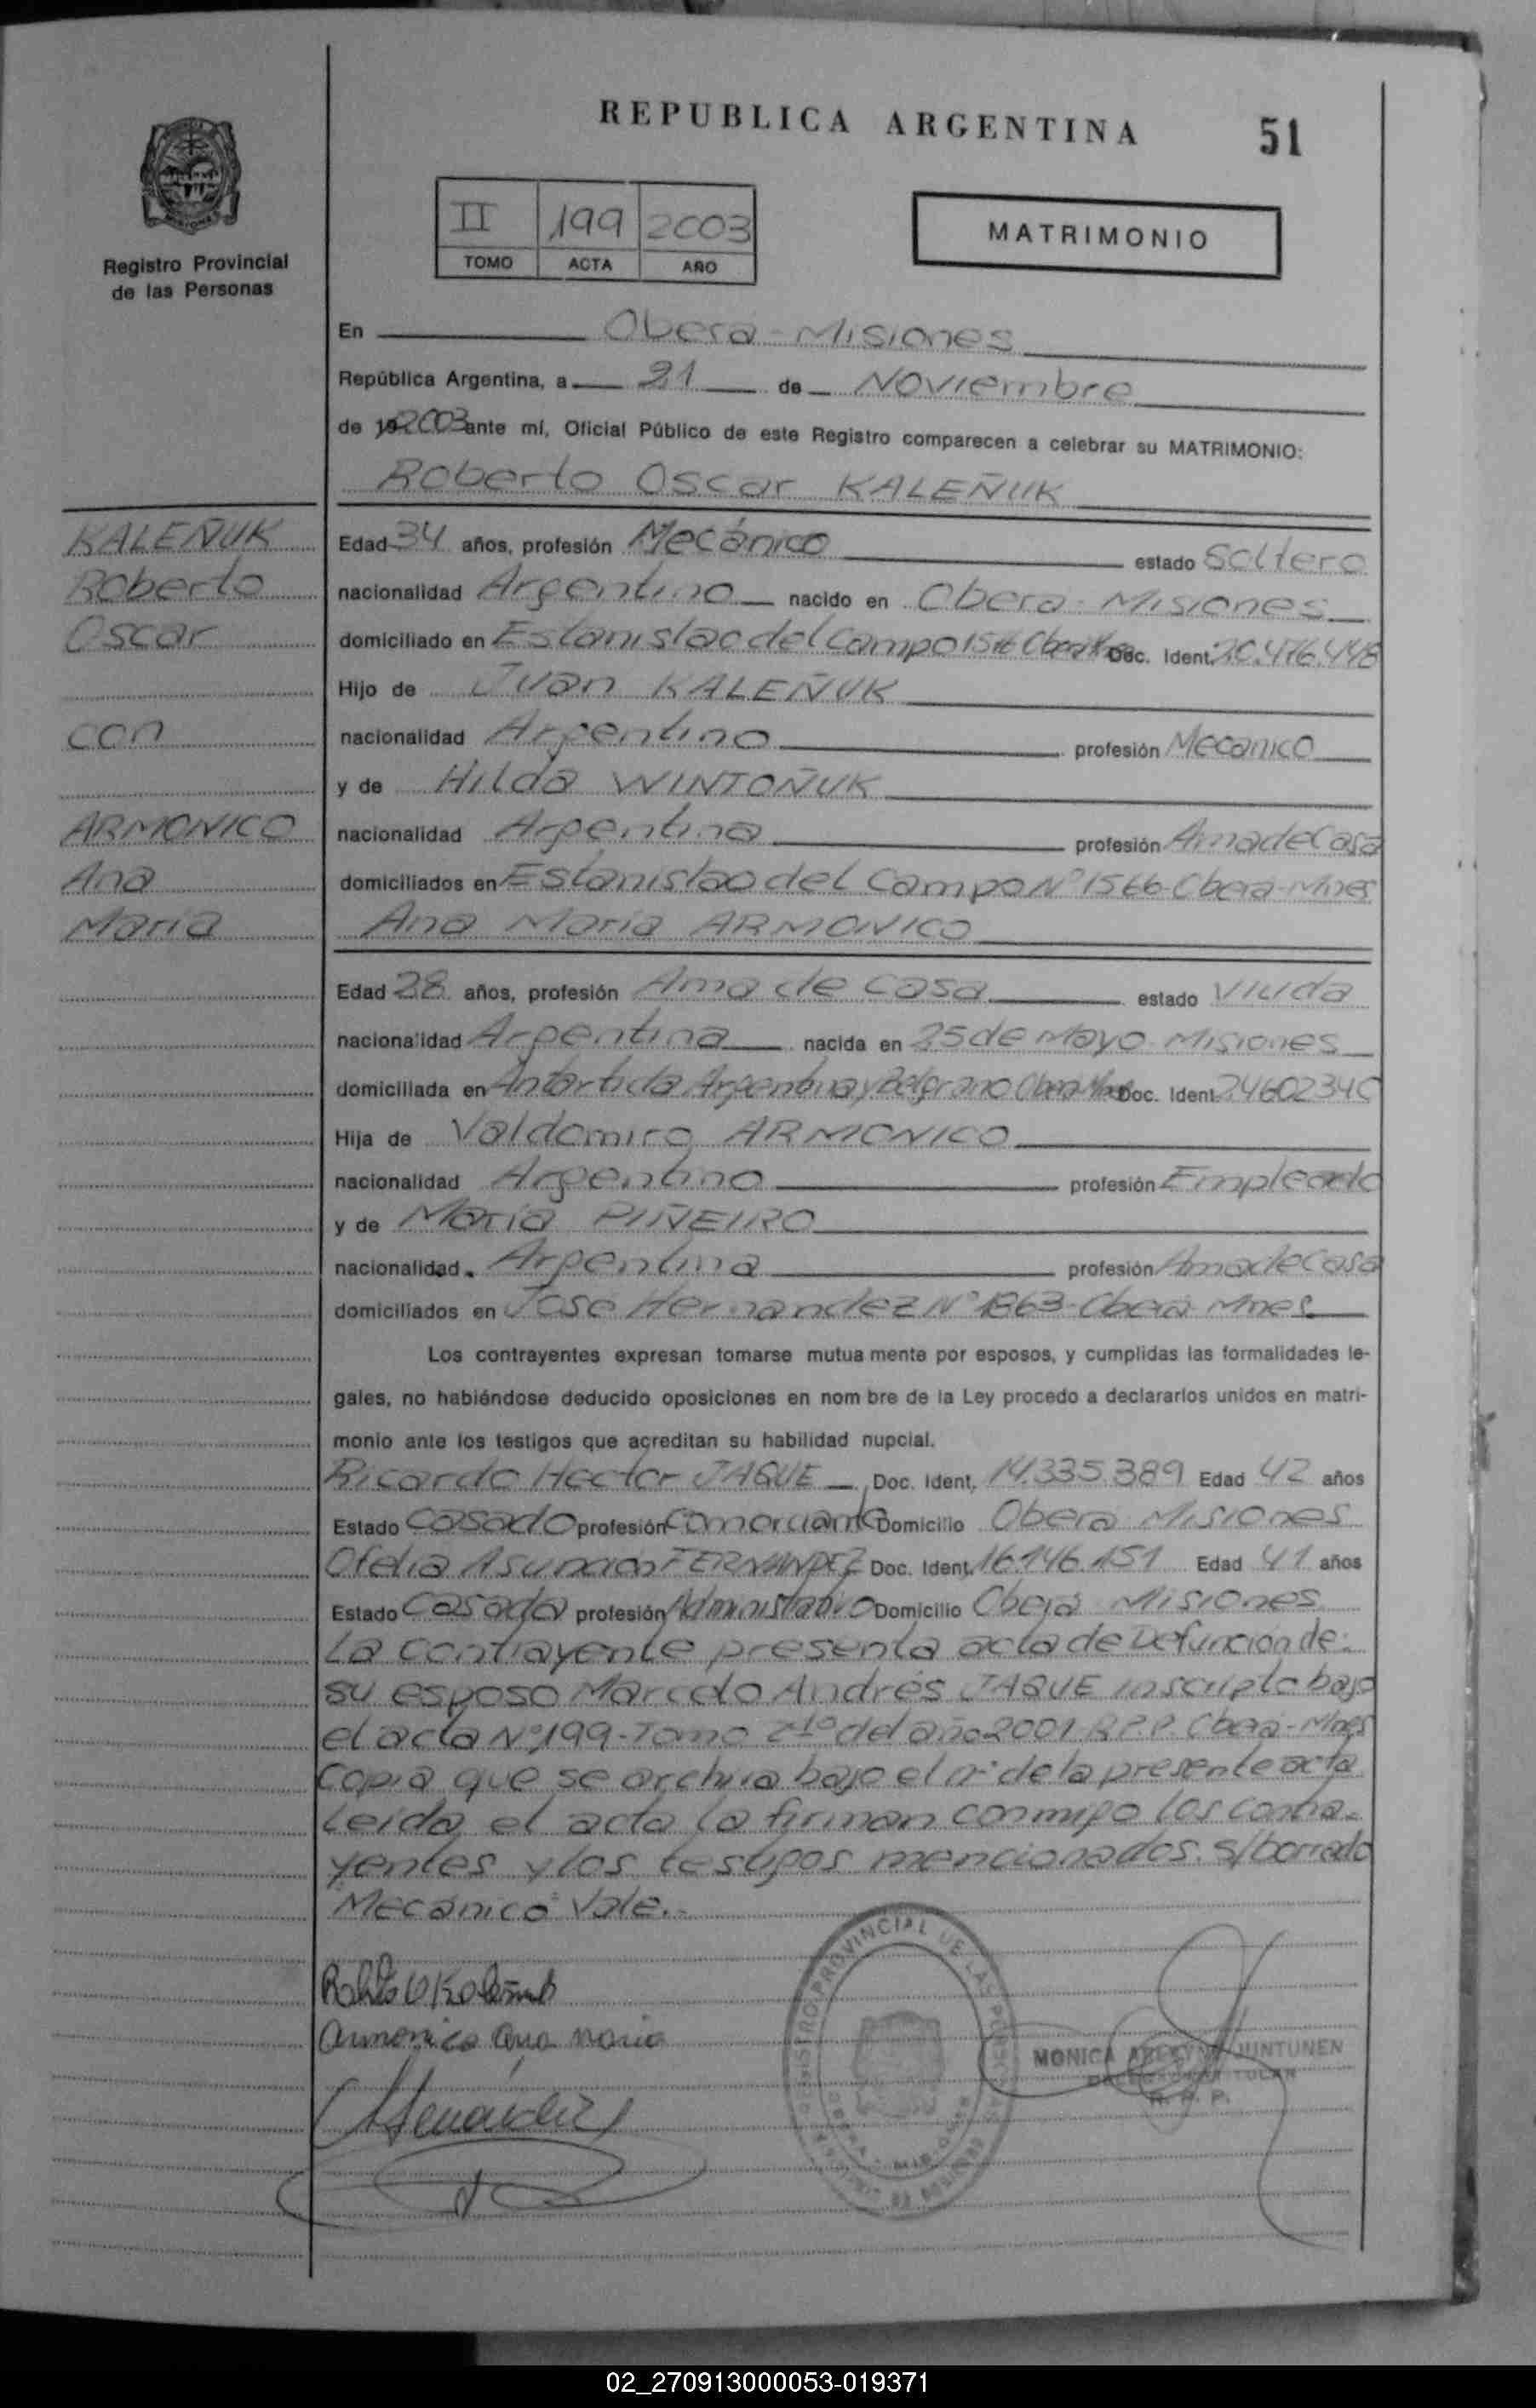 REPUBLICA ARGENTINA
51
II 199 2003
TOMO ACTA AÑO
MATRIMONIO
Registro Provincial
de las Personas
En Obera - Misiones
República Argentina, a 21 de Noviembre
de 2003 ante mí, Oficial Público de este Registro comparecen a celebrar su MATRIMONIO:
Roberto Oscar KALEÑUK
KALEÑUK
Roberto
Oscar
con
ARMONICO
Ana
Maria
Edad 34 años, profesión Mecánico estado Soltero
nacionalidad Argentino nacido en Obera - Misiones
domiciliado en Estanislao del Campo Obera Doc. Ident. 20.476.448
Hijo de Juan KALEÑUK
nacionalidad Argentino profesión Mecanico
y de Hilda WINTOÑUK
nacionalidad Argentina profesión Ama de Casa
domiciliados en Estanislao del Campo Nº 1566 - Obera - Mnes
Ana Maria ARMONICO
Edad 28 años, profesión Ama de Casa estado Viuda
nacionalidad Argentina nacida en 25 de Mayo - Misiones
domiciliada en Antartida Argentina y Belgrano Obera Mnes Doc. Ident. 24602340
Hija de Valdomiro ARMONICO
nacionalidad Argentino profesión Empleado
y de Maria PIÑEIRO
nacionalidad Argentina profesión Ama de Casa
domiciliados en Jose Hernandez Nº 1863 - Obera - Mnes
Los contrayentes expresan tomarse mutua mente por esposos, y cumplidas las formalidades le-
gales, no habiéndose deducido oposiciones en nom bre de la Ley procedo a declararlos unidos en matri-
monio ante los testigos que acreditan su habilidad nupcial.
Ricardo Hector JAQUE Doc. Ident. 14.335.389 Edad 42 años
Estado Casado profesión Comerciante Domicilio Obera Misiones
Ofelia Asuncion FERNANDEZ Doc. Ident. 16.146.151 Edad 41 años
Estado Casada profesión Administativo Domicilio Obera Misiones
La contrayente presenta acta de Defunción de:
su esposo Marcelo Andrés JAQUE inscripto bajo
el acta Nº 199 - Tomo del año 2001 R.P.P. Obera - Mnes
copia que se archiva bajo el nº de la presente acta
Leida el acta la firman conmigo los contra-
yentes y los testigos mencionados. s/borrado
"Mecánico" Vale.-
Armonico Ana Maria
REGISTRO PROVINCIAL DE LAS PERSONAS
MONICA JUNTUNEN
R. P. P.
02_270913000053-019371